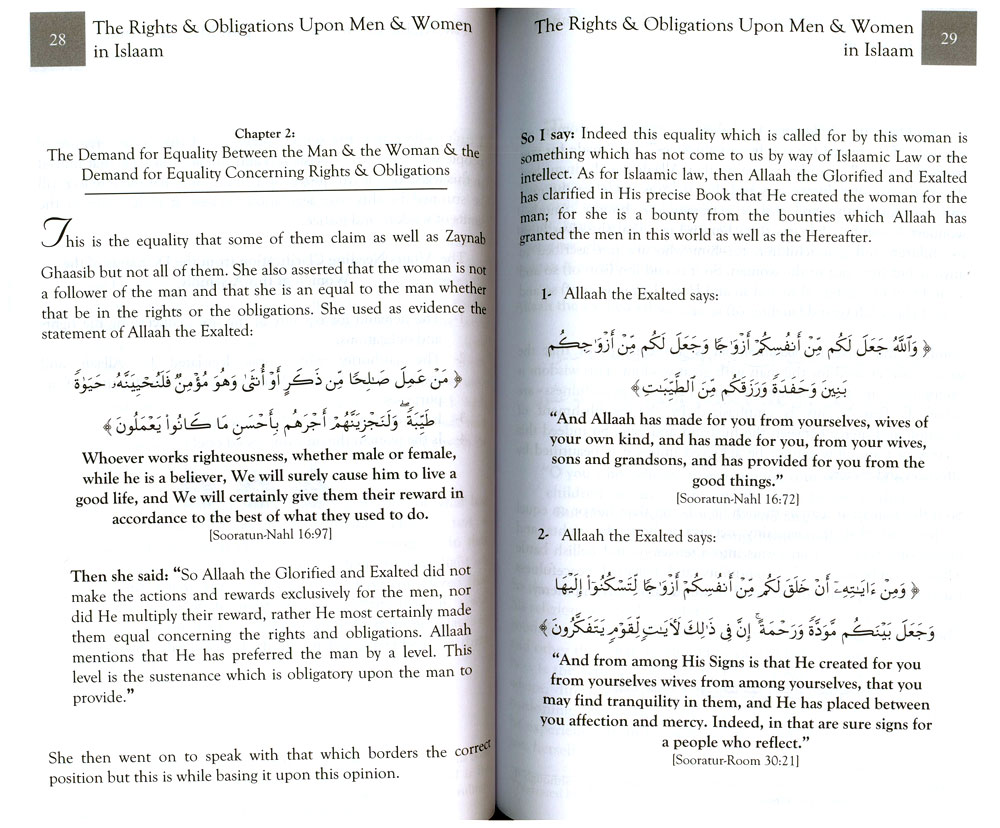 28
The Rights & Obligations Upon Men & Women
in Islaam
Chapter 2:
The Demand for Equality Between the Man & the Woman & the
Demand for Equality Concerning Rights & Obligations
This is the equality that some of them claim as well as Zaynab
Ghaasib but not all of them. She also asserted that the woman is not
a follower of the man and that she is an equal to the man whether
that be in the rights or the obligations. She used as evidence the
statement of Allaah the Exalted:
﴿ مَنْ عَمِلَ صَـٰلِحًا مِّن ذَكَرٍ أَوْ أُنثَىٰ وَهُوَ مُؤْمِنٌ فَلَنُحْيِيَنَّهُۥ حَيَوٰةً
طَيِّبَةً ۖ وَلَنَجْزِيَنَّهُمْ أَجْرَهُم بِأَحْسَنِ مَا كَانُوا۟ يَعْمَلُونَ ﴾
Whoever works righteousness, whether male or female,
while he is a believer, We will surely cause him to live a
good life, and We will certainly give them their reward in
accordance to the best of what they used to do.
[Sooratun-Nahl 16:97]
Then she said: “So Allaah the Glorified and Exalted did not
make the actions and rewards exclusively for the men, nor
did He multiply their reward, rather He most certainly made
them equal concerning the rights and obligations. Allaah
mentions that He has preferred the man by a level. This
level is the sustenance which is obligatory upon the man to
provide.”
She then went on to speak with that which borders the correct
position but this is while basing it upon this opinion.
The Rights & Obligations Upon Men & Women
in Islaam
29
So I say: Indeed this equality which is called for by this woman is
something which has not come to us by way of Islaamic Law or the
intellect. As for Islaamic law, then Allaah the Glorified and Exalted
has clarified in His precise Book that He created the woman for the
man; for she is a bounty from the bounties which Allaah has
granted the men in this world as well as the Hereafter.
1- Allaah the Exalted says:
﴿ وَٱللَّهُ جَعَلَ لَكُم مِّنْ أَنفُسِكُمْ أَزْوَٰجًا وَجَعَلَ لَكُم مِّنْ أَزْوَٰجِكُم
بَنِينَ وَحَفَدَةً وَرَزَقَكُم مِّنَ ٱلطَّيِّبَـٰتِ ﴾
“And Allaah has made for you from yourselves, wives of
your own kind, and has made for you, from your wives,
sons and grandsons, and has provided for you from the
good things.”
[Sooratun-Nahl 16:72]
2- Allaah the Exalted says:
﴿ وَمِنْ ءَايَـٰتِهِۦٓ أَنْ خَلَقَ لَكُم مِّنْ أَنفُسِكُمْ أَزْوَٰجًا لِّتَسْكُنُوٓا۟ إِلَيْهَا
وَجَعَلَ بَيْنَكُم مَّوَدَّةً وَرَحْمَةً ۚ إِنَّ فِى ذَٰلِكَ لَـَٔايَـٰتٍ لِّقَوْمٍ يَتَفَكَّرُونَ ﴾
“And from among His Signs is that He created for you
from yourselves wives from among yourselves, that you
may find tranquility in them, and He has placed between
you affection and mercy. Indeed, in that are sure signs for
a people who reflect.”
[Sooratur-Room 30:21]